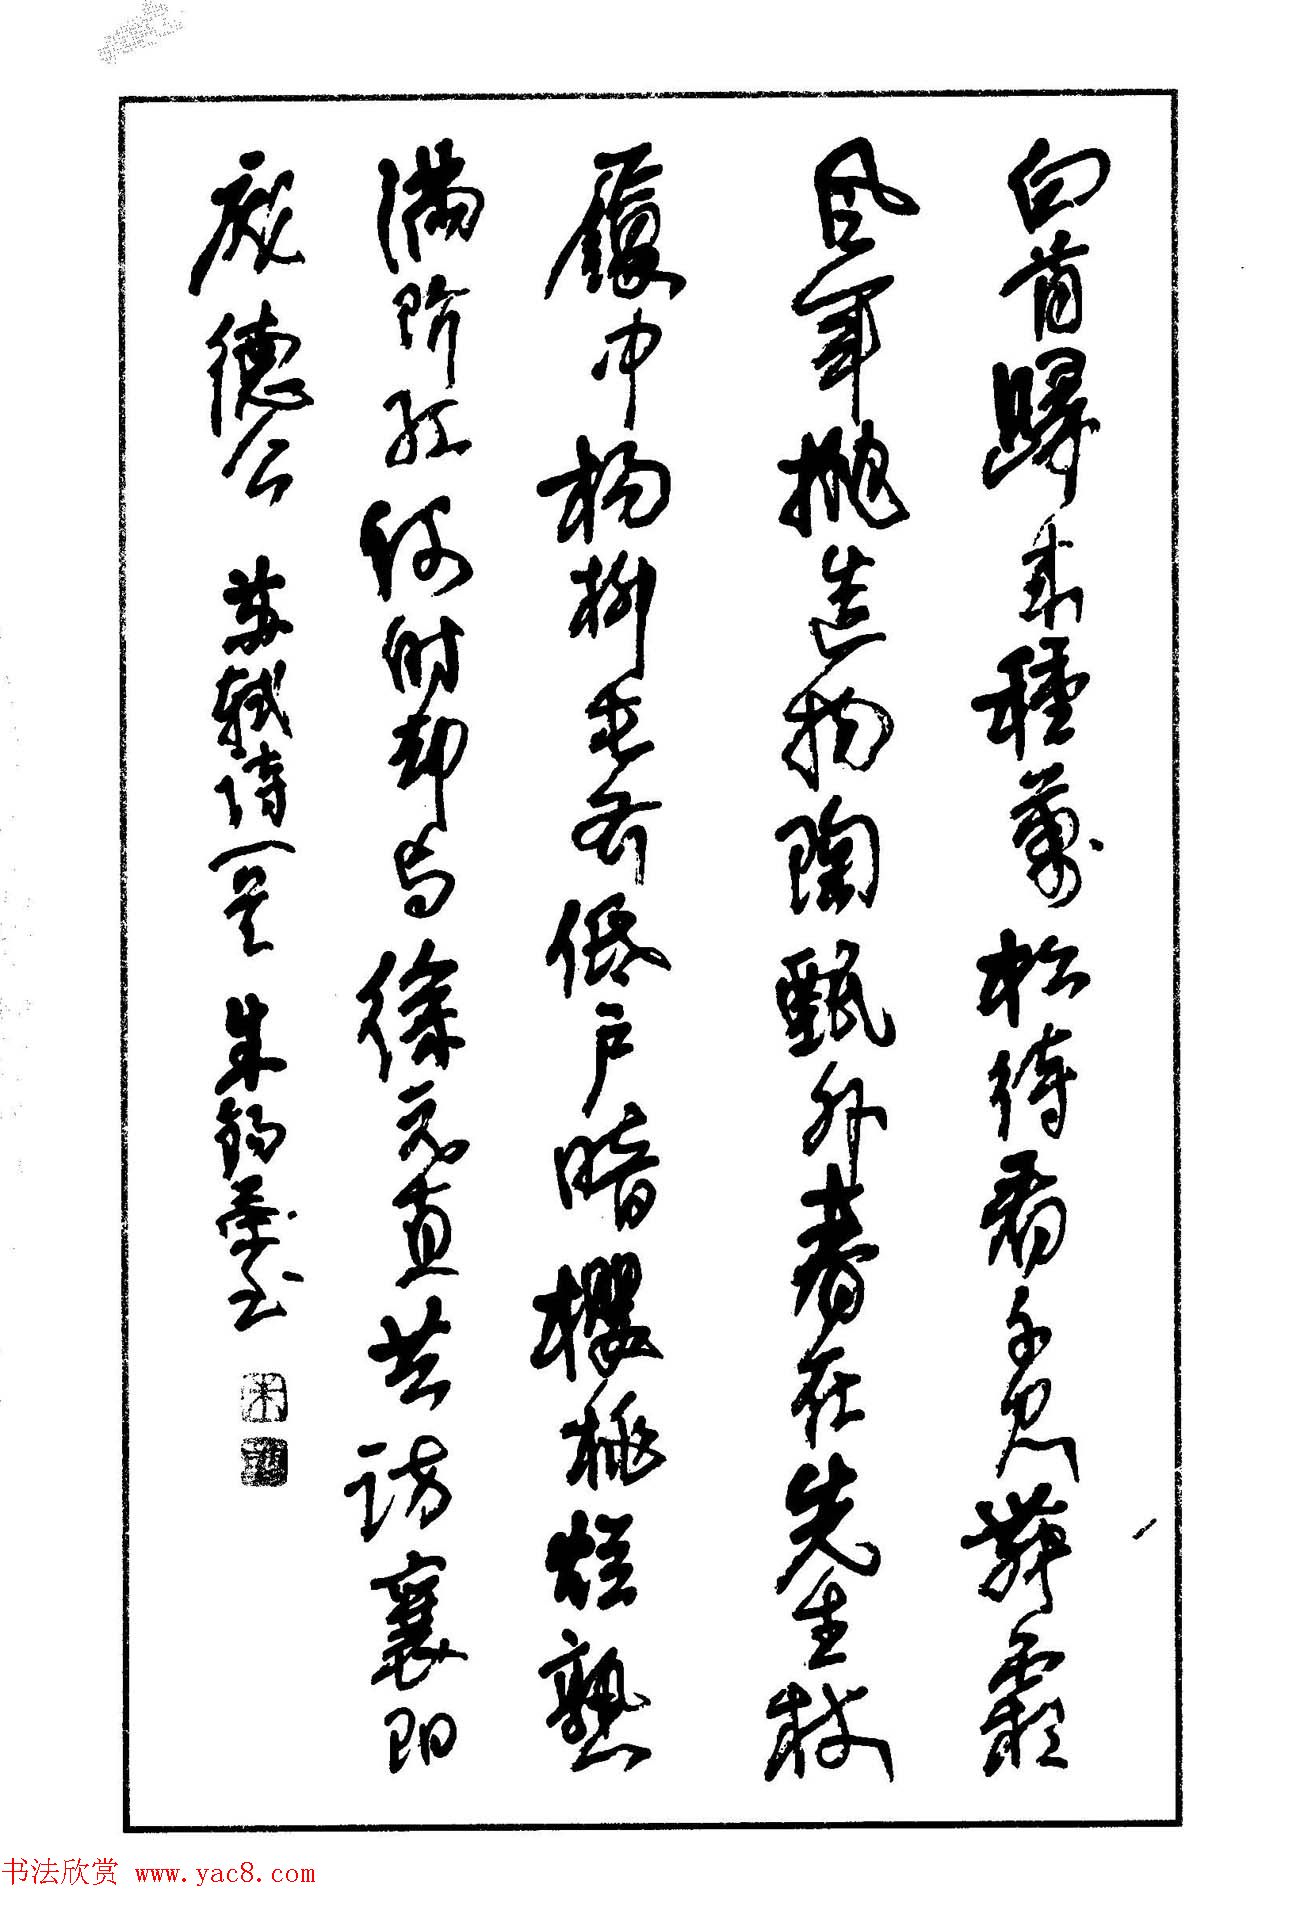 白首歸来種萬松待看千尺舞霜
风年抛造物陶甄外春在先生杖
屦中杨柳长齐低户暗樱桃烂熟
满阶红何时却与徐元直共访襄阳
庞德公 苏轼诗一首 朱锡荣书
朱
书法欣赏 www.yac8.com